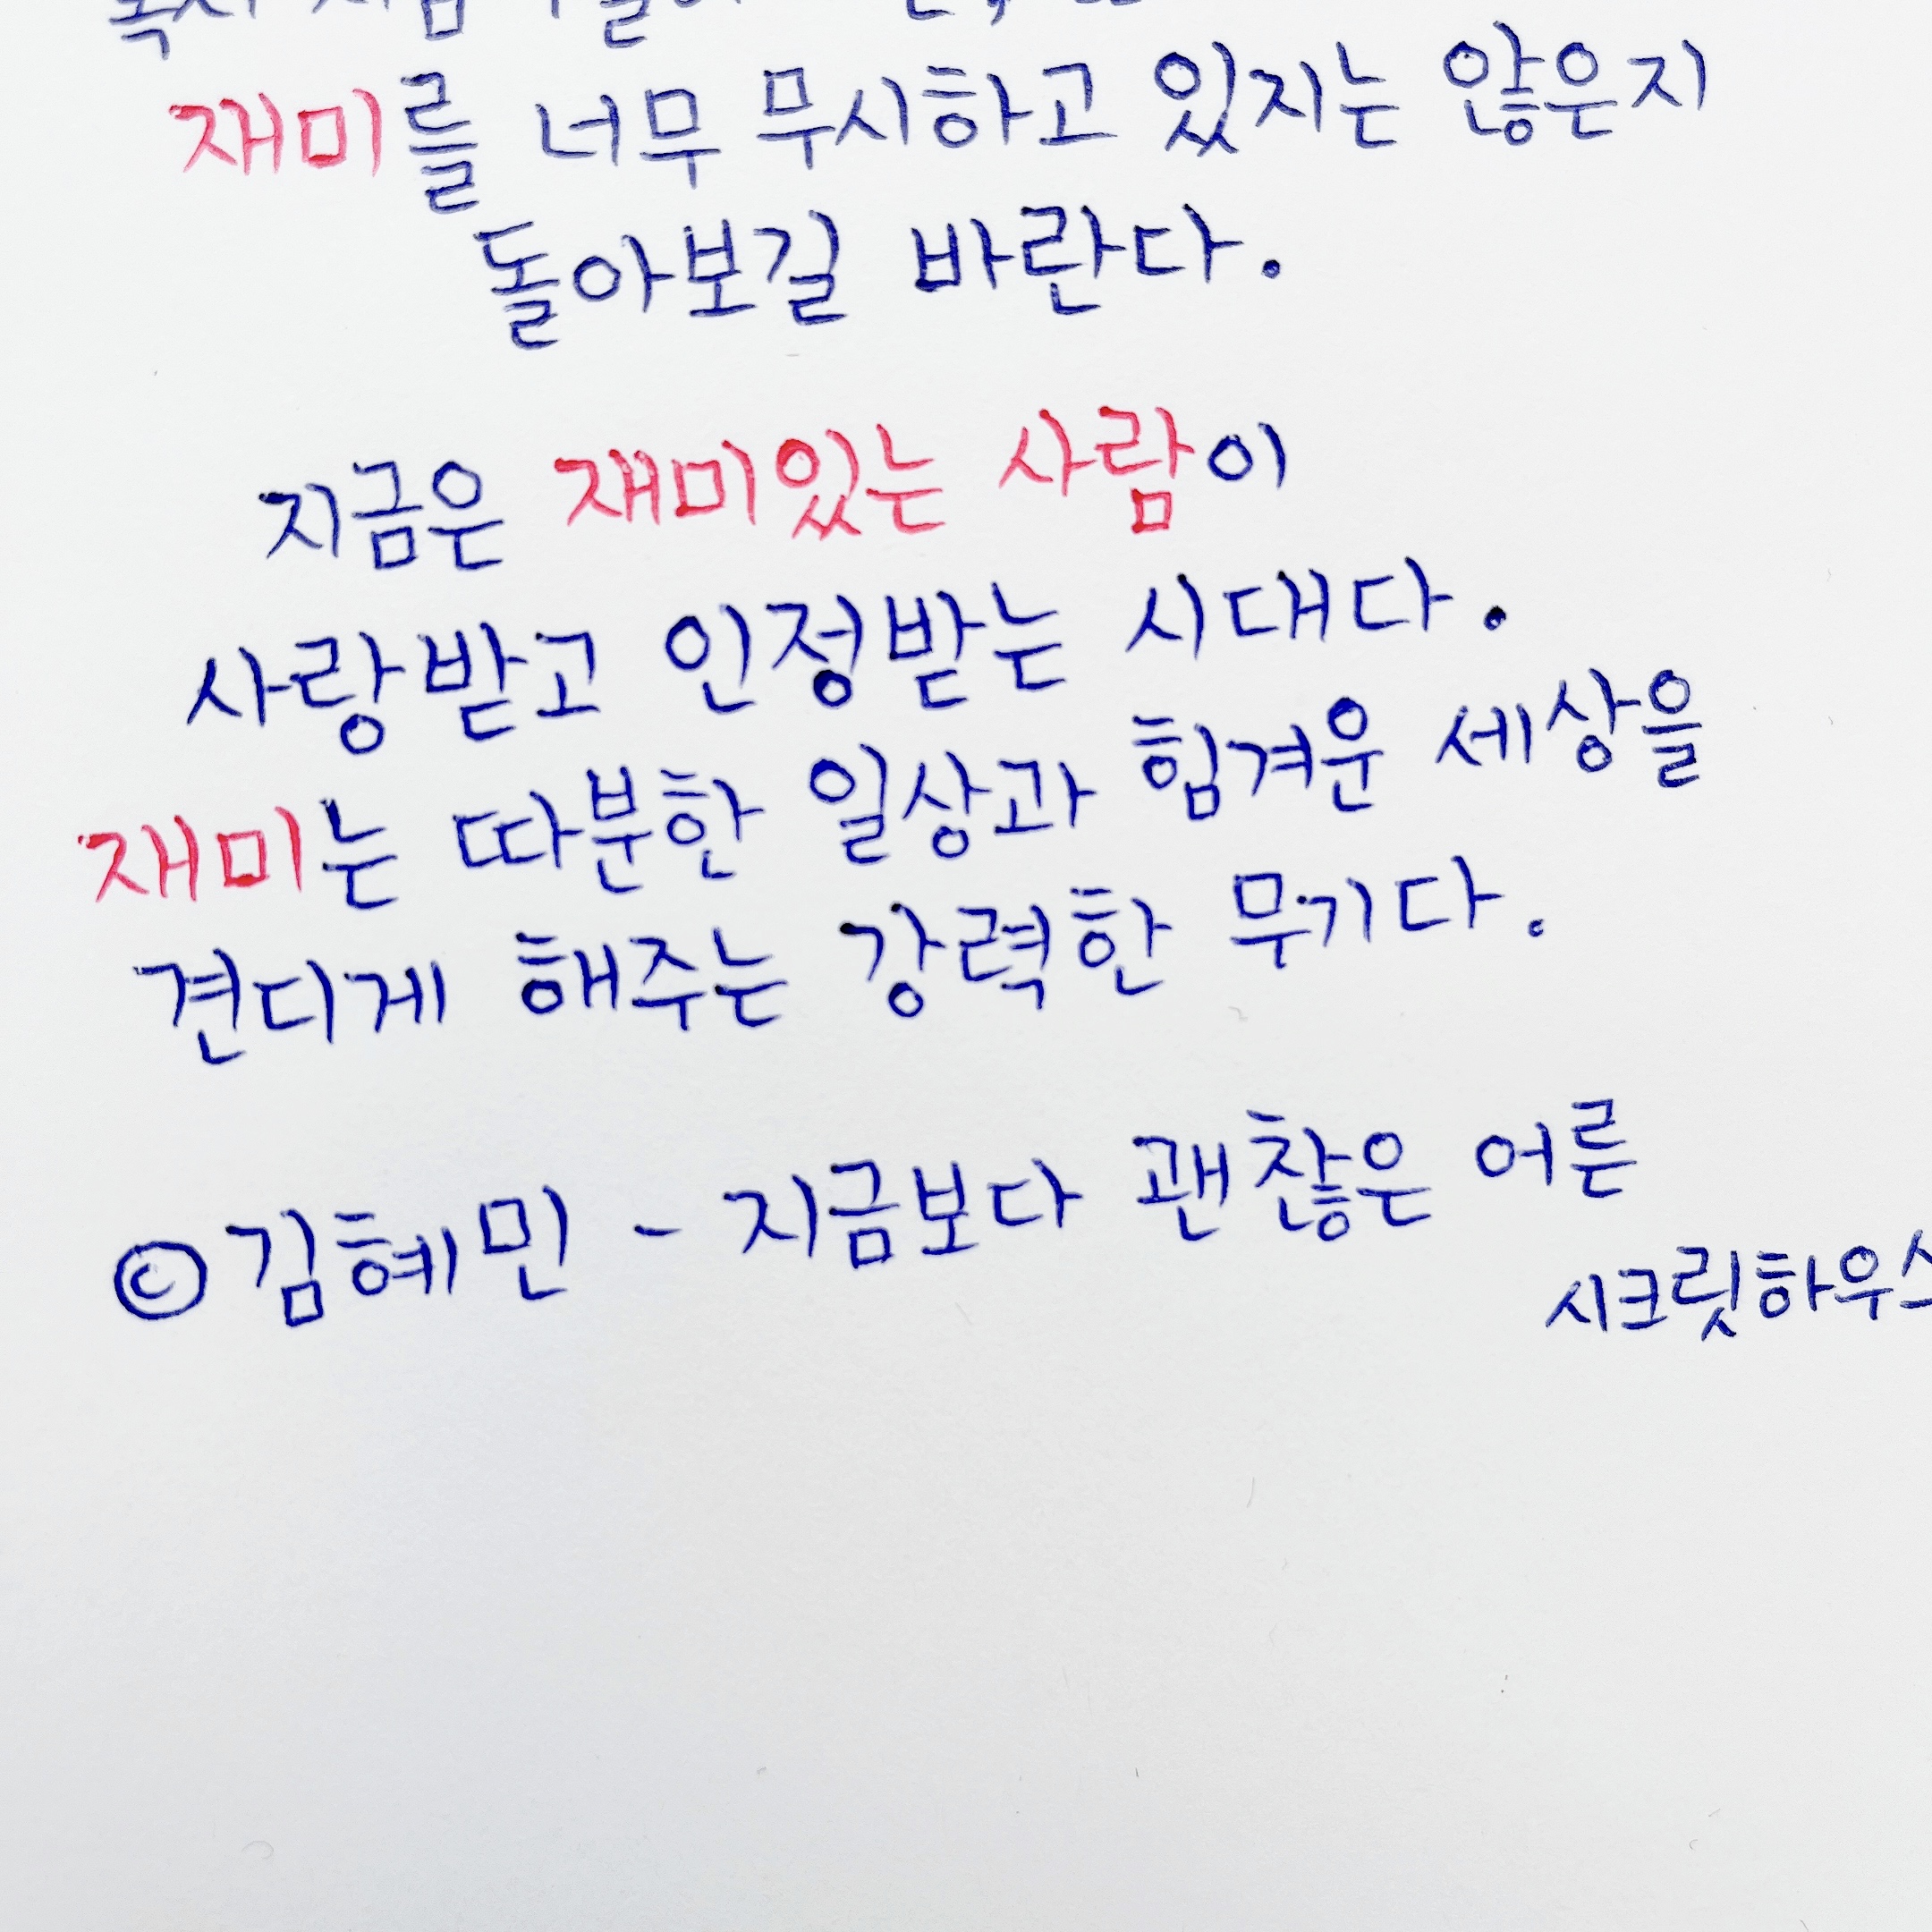 재미를 너무 무시하고 있지는 않은지
돌아보길 바란다.
지금은 재미있는 사람이
사랑받고 인정받는 시대다.
재미는 따분한 일상과 힘겨운 세상을
견디게 해주는 강력한 무기다.
©김혜민 - 지금보다 괜찮은 어른
시크릿하우스